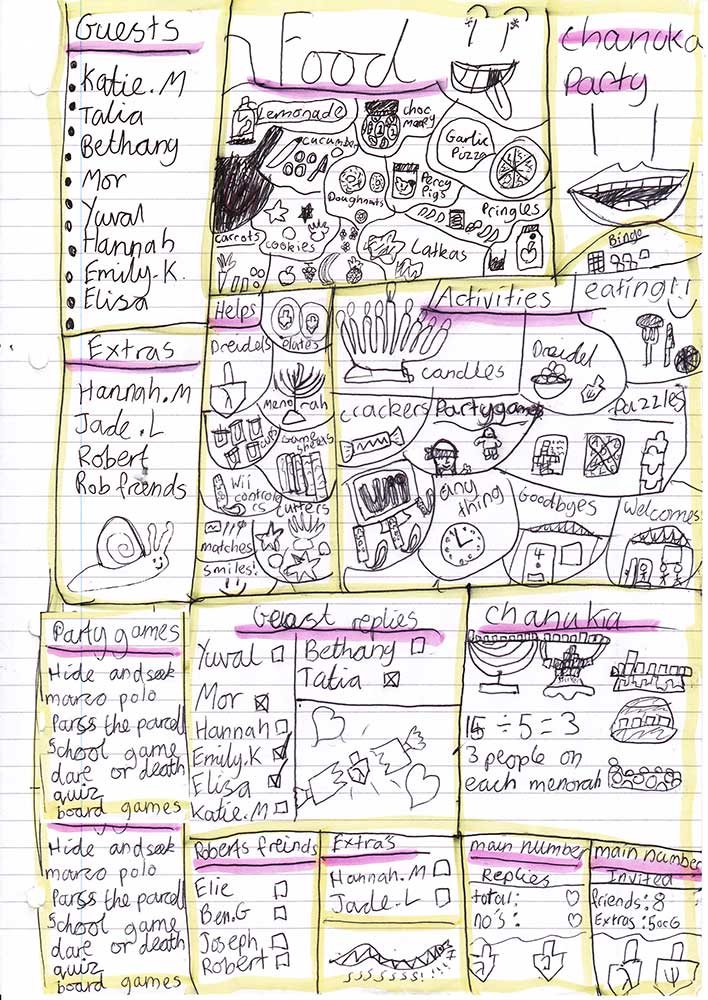 Guests
Katie.M
Talia
Bethany
Mor
Yuval
Hannah
Emily.K.
Elisa
Food
Lemonade
choc
money
cucumber
Garlic
Pizza
Doughnuts
Percy
Pigs
Pringles
carrots
cookies
Latkas
chanuka
Party
Binge
eating!!
Extras
Hannah.M
Jade.L
Robert
Rob freinds
Helps
Dreidels
plates
Menorah
cups
Wii
controle
rs
cutters
matches
smiles!
Activities
candles
Dreidel
crackers
Partygames
Puzzles
any
thing
Goodbyes
Welcomes
4
Party games
Hide and seek
marco polo
Parss the parcell
school game
dare or death
quiz
board games
Geust replies
Yuval
Mor
Hannah
Emily.K
Elisa
Katie.M
Bethany
Talia
chanukia
15 ÷ 5 = 3
3 people on
each menorah
Hide and seek
marco polo
Parss the parcell
school game
dare or death
quiz
board games
Roberts freinds
Elie
Ben.G
Joseph
Robert
Extra's
Hannah.M
Jade.L
sssssss!!!!
main number
Replies
total:
no's:
main number
Invited
friends: 8
Extras: 5 or 6